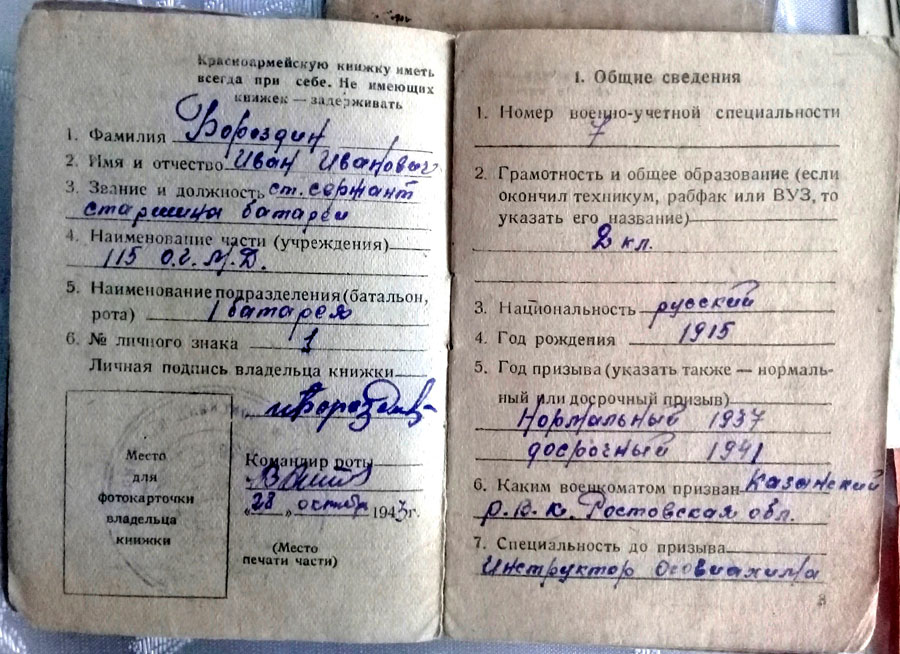 Красноармейскую книжку иметь
всегда при себе. Не имеющих
книжек — задерживать
1. Фамилия Бороздин
2. Имя и отчество Иван Иванович
3. Звание и должность ст. сержант
старшина батареи
4. Наименование части (учреждения)
115 О.Г.М.Д.
5. Наименование подразделения (батальон,
рота) 1 батарея
6. № личного знака
Личная подпись владельца книжки
Место
для
фотокарточки
владельца
книжки
Командир роты
„28 „ октября 1943г.
(Место
печати части)
1. Общие сведения
1. Номер военно-учетной специальности
7
2. Грамотность и общее образование (если
окончил техникум, рабфак или ВУЗ, то
указать его название)
2 кл.
3. Национальность русский
4. Год рождения 1915
5. Год призыва (указать также — нормаль-
ный или досрочный призыв)
Нормальный 1937
досрочный 1941
6. Каким военкоматом призван Казанский
Р.В.К. Ростовская обл.
7. Специальность до призыва
Инструктор Осовиахима
3